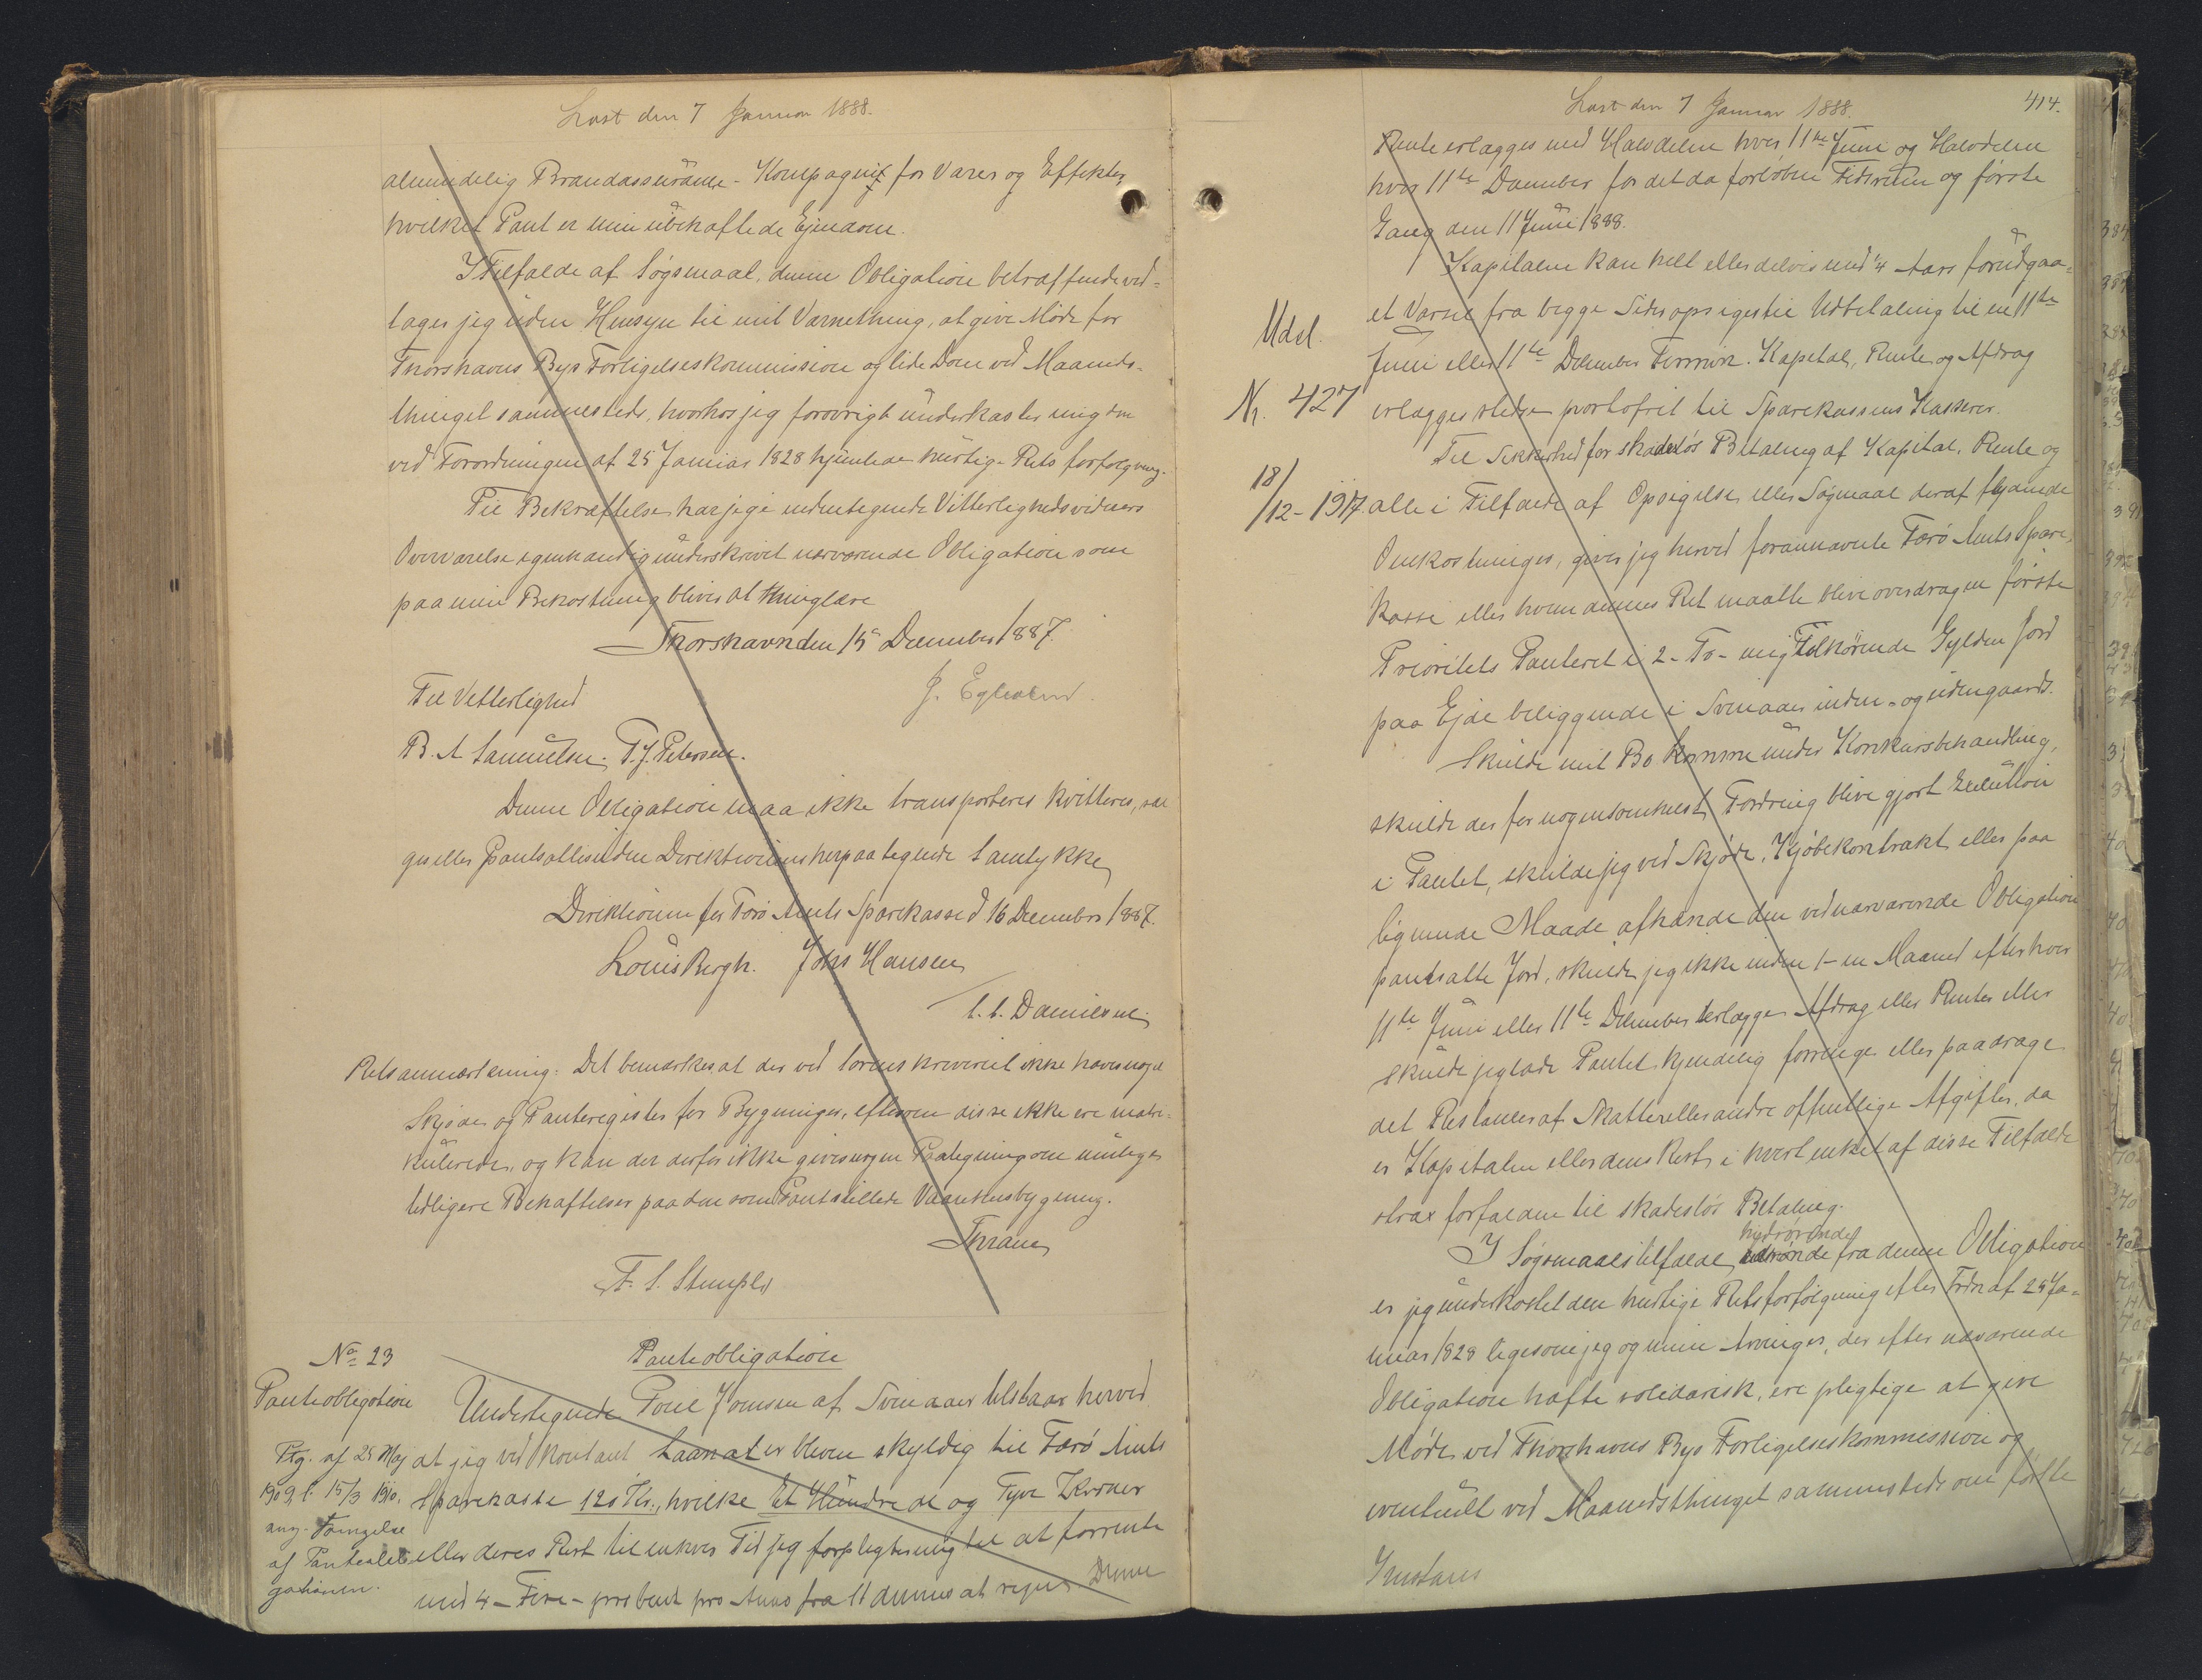 Læst den 7 Januar 1888.
almindelig Brandassurance-Kompagni for Varer og Effekter,
hvilket Pant er min ubehæftede Ejendom.
I Tilfælde af Søgsmaal, denne Obligation betræffende ved-
tager jeg uden Hensyn til mit Værnething, at give Møde for
Thorshavns Bys Forligelseskommission og lide Dom ved Maaneds-
thinget sammesteds, hvorhos jeg forøvrigt underkaster mig den
ved Forordningen af 25 Januar 1828 hjemlede hurtige Retsforfølgning.
Til Bekræftelse har jeg i undertegnede Vitterlighedsvidners
Overværelse egenhændig underskrevet nærværende Obligation som
paa min Bekostning bliver at thinglæse
Thorshavn den 15 December 1887.
Til Vitterlighed
J. Egholm.
B. A Samuelsen. P. J. Petersen.
Denne Obligation maa ikke transporteres kvitteres, sæl
ges eller pantsættes uden Direktionens herpaa tegnede Samtykke,
Direktionen for Færø Amts Sparekasse d. 16 December 1887.
Louis Bergh. Johs Hansen
C. C. Danielsen
Retsanmærkning: Det bemærkes at der ved Sorenskriveriet ikke haves noget
Skjøde og Panteregister for Bygninger, eftersom disse ikke ere matri-
kulerede, og kan der derfor ikke gives nogen Paategning om muligen
tidligere Behæftelser paa den som Pant stillede Vaaningsbygning.
Thrane
F. S. Stempler
No 23
Pantobligation
Panteobligation
Undertegnede Poul Joensen af Svinaaer tilstaar herved
Ptg. af 25 Maj
at jeg ved kontant Laan at er bleven skyldig til Færø Amts
1909, l. 15/3 1910.
Sparekasse 120 Kr., hvilke Et Hundrede og Tyve Kroner
ang. Fornyelse
af Panteobli
eller deres Rest til enhver Tid jeg forpligter mig til at forrente
gationen.
med 4 - Fire - procent pro Anno fra 11 dennes at regne. Denne
Læst den 7 Januar 1888.
414.
Rente erlægges med Halvdelen hver 11te Juni og Halvdelen
hver 11te December for det da forløbne Tidsrum og første
Gang den 11 Juni 1888.
Kapitalen kan helt eller delvis med 1/4 Aars forudgaa-
et Varsel fra begge Sider opsiges til Udbetaling til en 11te
Udsl.
Juni eller 11te December Termin. Kapital, Rente og Afdrag
Nr. 427
erlægges stedse portofrit til Sparekassens Kasserer.
Til Sikkerhed for skadesløs Betaling af Kapital, Rente og
18/12-1917.
alle i Tilfælde af Opsigelse eller Søgmaal deraf flydende
Omkostninger, giver jeg herved forannævnte Færø Amts Spare-
kasse eller hvem dennes Ret maatte blive overdragen første
Prioritets Panteret i 2 - To - mig Tilhørende Gylden Jord
paa Ejde beliggende i Svinaaer inden- og udengaards.
Skulde mit Bo komme under Konkursbehandling,
skulde der for nogensomhelst Fordring blive gjort Exekution
i Pantet, skulde jeg ved Skjøde, Kjøbekontrakt eller paa
lignende Maade afhænde den ved nærværende Obligation
pantsatte Jord, skulde jeg ikke inden 1 - en Maaned efter hver
11te Juni eller 11te December erlægge Afdrag eller Renter eller
skulde jeg lade Pantet kjendelig forringe eller paadrage
det Restancer af Skatter eller andre offentlige Afgifter, da
er Kapitalen eller dens Rest i hvert enkelt af disse Tilfælde
strax forfalden til skadesløs Betaling.
hidrørende
I Søgsmaalstilfælde fra denne Obligation
er jeg underkastet den hurtige Retsforfølgning efter Frdn af 25 Ja-
nuar 1828 ligesom jeg og mine Arvinger, der efter nærværende
Obligation hæfte solidarisk, ere pligtige at give
Møde ved Thorshavns Bys Forligelseskommission og
eventuelt ved Maanedsthinget sammesteds som første
Instans